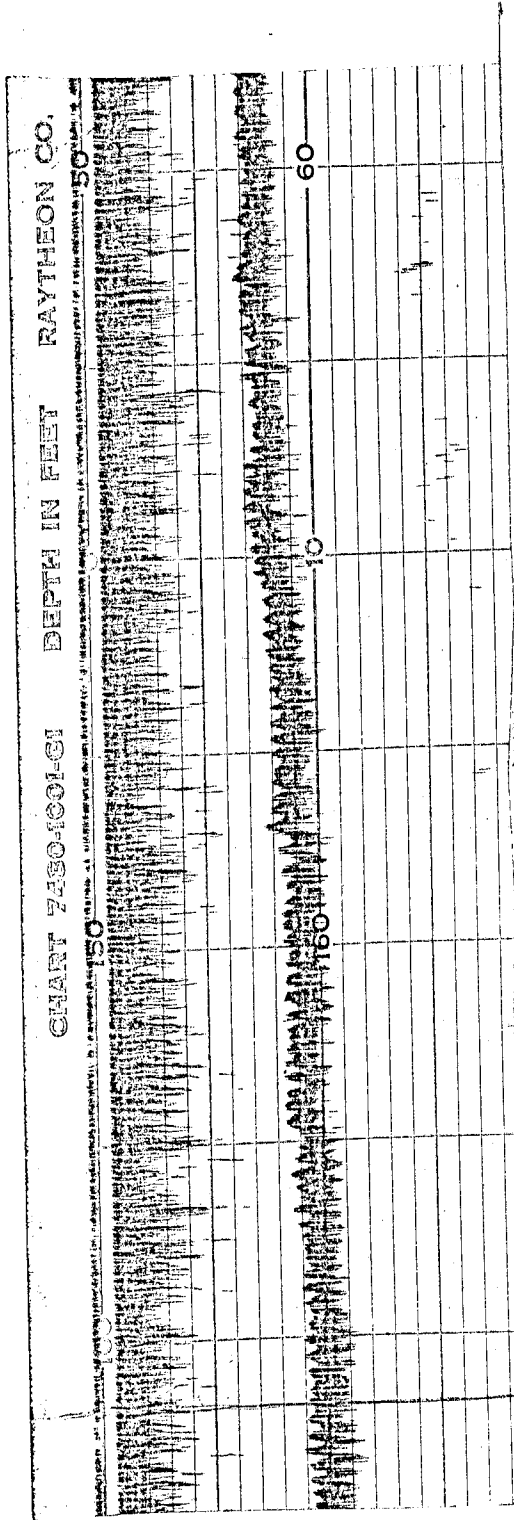 CHART 7490-1001-G1 DEPTH IN FEET RAYTHEON CO.
50
60
10
150
160
100